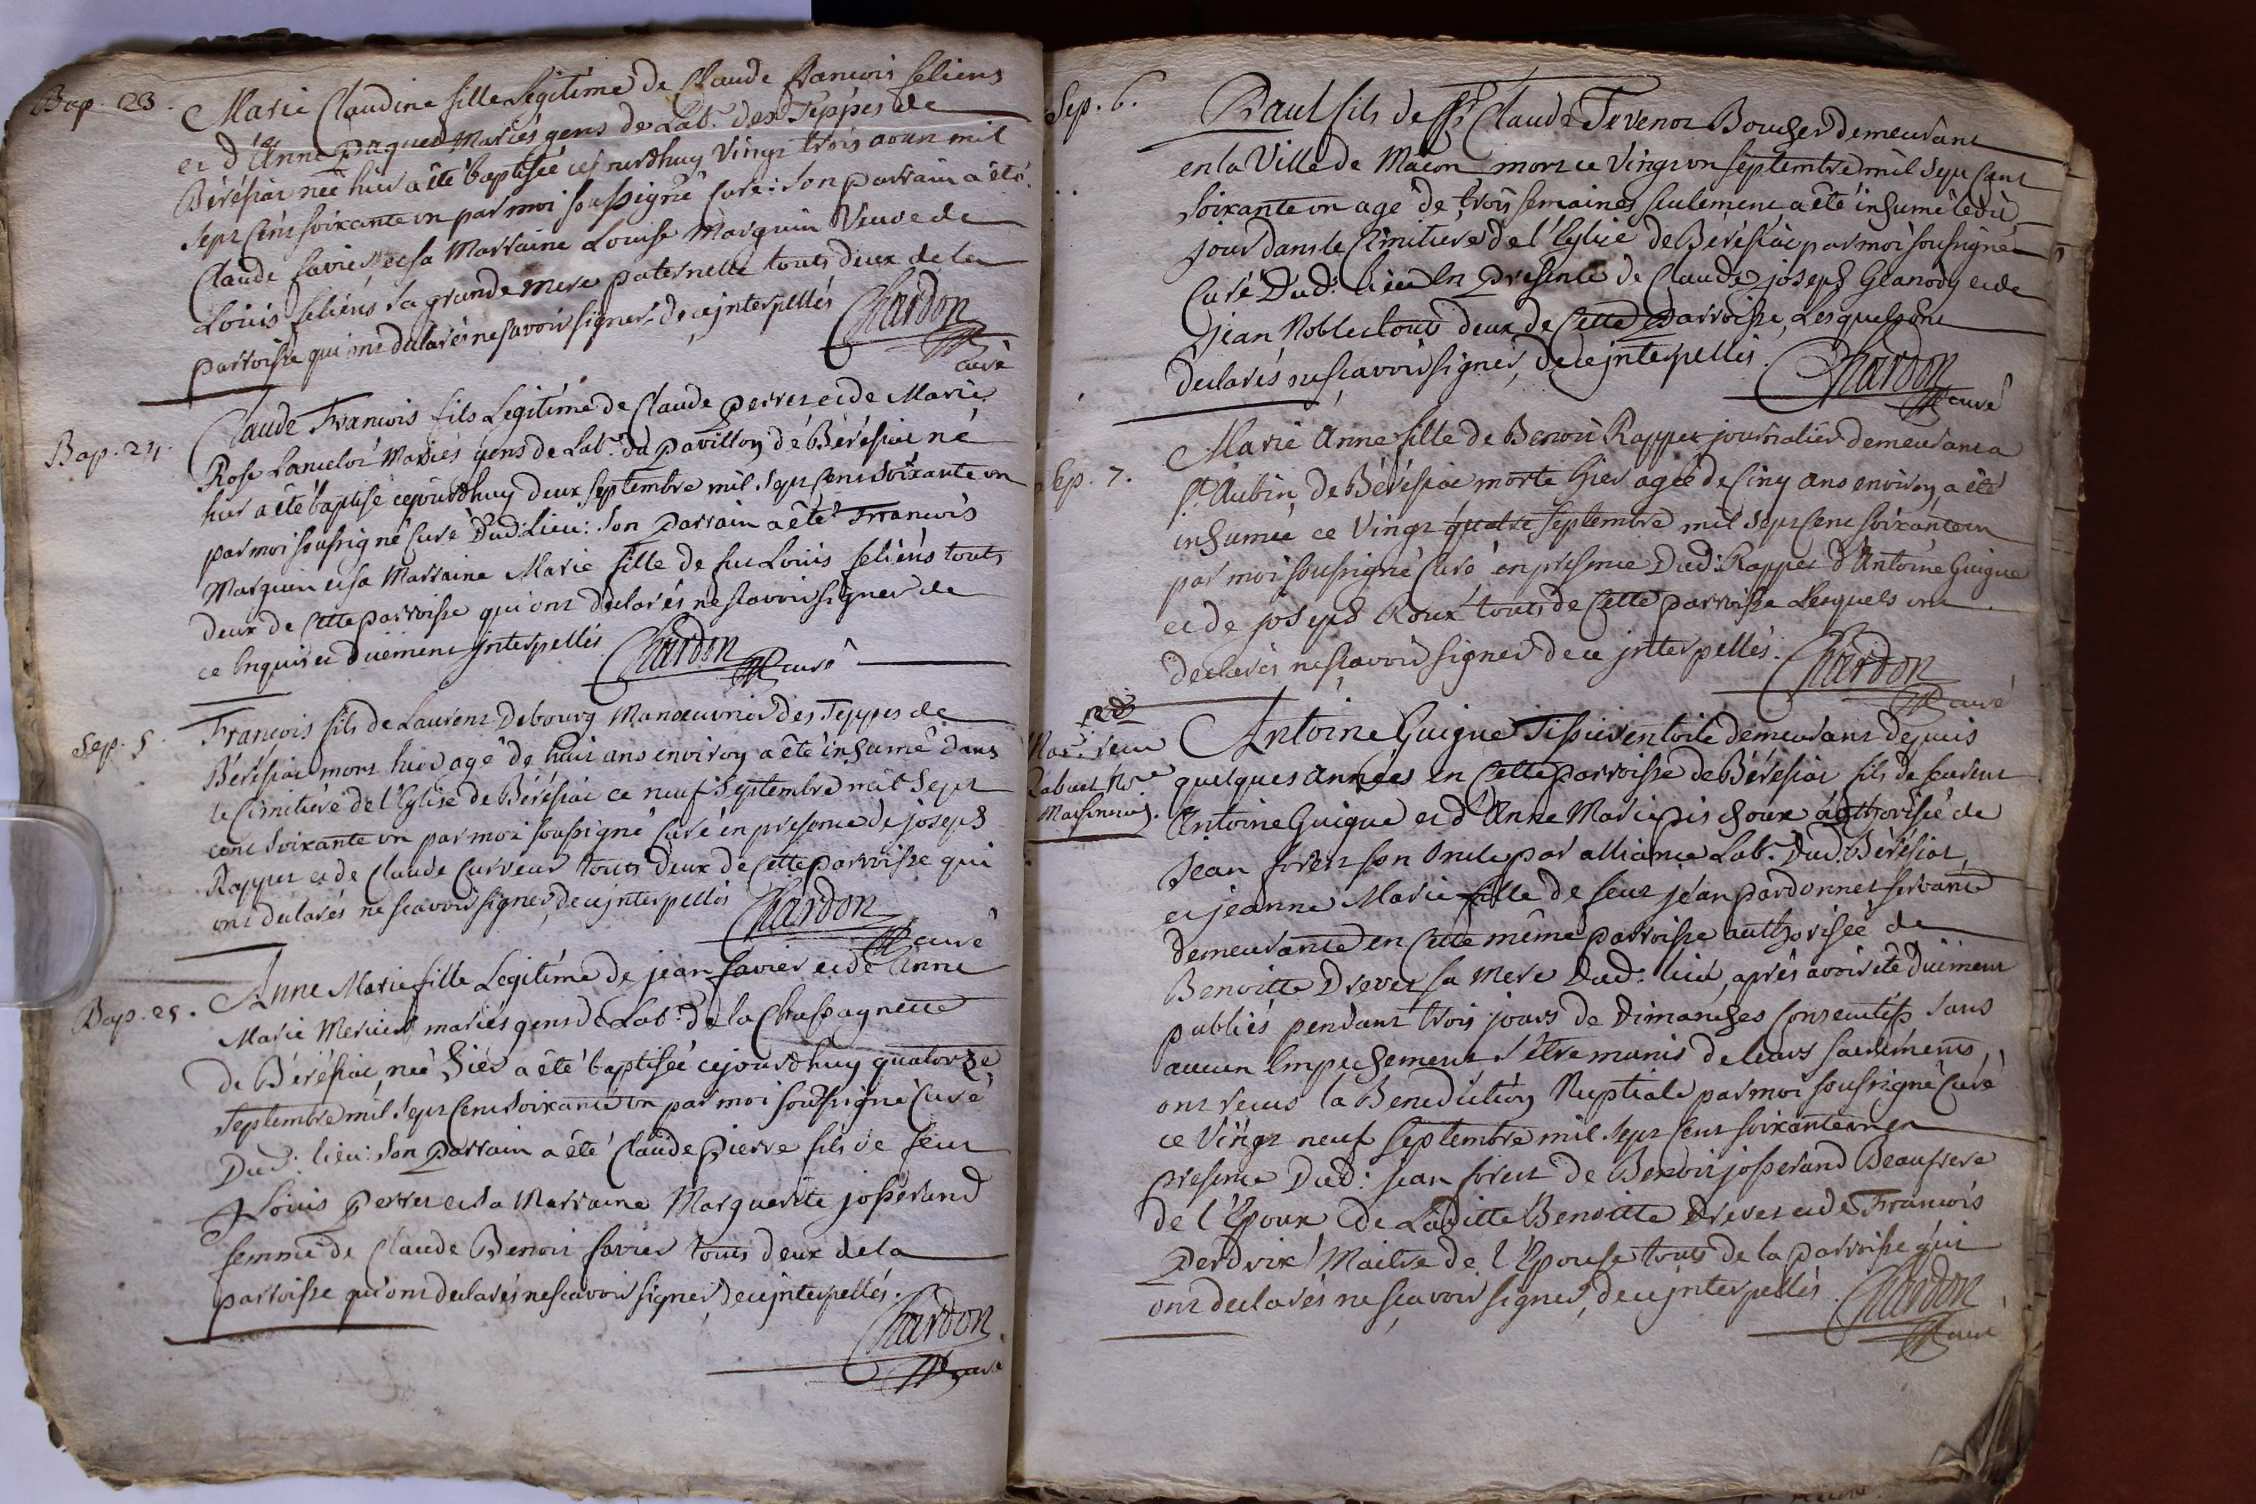 Bap. 23.
Marie Claudine fille Legitime de Claude francois feliens
et d'Anne paquet Mariés gens de Lab. des Teppes de
Béréziat neé hier a êté baptisée cejourdhuy vingt trois aoust mil
sept Cent soixante un par moi soussigné Curé: son parrain a êté
Claude favier et sa Marraine Louise Marguin Veuve de
Loüis feliens sa grande mere paternelle touts deux de la
parroisse qui ont déclarés ne savoir signer de ce jnterpellés
Chardon
curé
Bap. 24.
Claude Francois fils Legitime de Claude perret et de Marie
Rose Lancelot Mariés gens de Lab. du pavillon de Béréziat né
hier a êté baptisé cejourdhuy deux septembre mil sept cent soixante un
par moi soussigné Curé Dud: Lieu: son parrain a êté Francois
Marguin et sa Marraine Marie fille de feu Loüis feliens touts
deux de Cette parroisse qui ont déclarés ne scavoir signer de
ce Enquis et düement jnterpellés
Chardon
curé
Sep. 5.
Francois fils de Laurent Debourg Manoeuvrier des Teppes de
Béréziat mort hier agé de huit ans environ a êté inhumé dans
le Cimitiére de l'Eglise de Béréziat ce neuf Septembre mil Sept
cent soixante un par moi soussigné Curé en presence de joseph
Rappet et de Claude Curveur touts deux de Cette parroisse qui
ont declarés ne scavoir signer, de ce jnterpellés
Chardon
curé
Bap. 25.
Anne Marie fille Legitime de jean favier et de Anne
Marie Mercier mariés gens de Lab. de la Chassagnette
de Béréziat, neé hier a êté baptisée cejourdhuy quatorze
septembre mil sept Cent soixante un par moi soussigné Curé
Dud: lieu: son parrain a êté Claude Pierre fils de feu
Loüis perret et sa Marraine Marguerite josserand
femme de Claude Benoit favier touts deux de la
parroisse qui ont declarés ne scavoir signer, de ce jnterpellés.
Chardon
curé
Sep. 6.
Paul fils de Claude Tevenot Boucher demeurant
en la Ville de Macon mort ce Vingt un septembre mil sept Cent
soixante un agé de trois semaines seulement a êté inhumé ledit
jour dans le Cimitiére de l'Eglise de Béréziat par moi soussigné
Curé Dud: lieu En presence de Claude joseph Geanody et de
jean Noblet touts deux de Cette parroisse, Lesquels ont
déclarés ne scavoir signer, de ce jnterpellés.
Chardon
curé
Sep. 7.
Marie Anne fille de Benoit Rappet journalier demeurant a
St. Aubin de Béréziat morte hier ageé de Cinq ans environ, a êté
inhumée ce Vingt quatre septembre mil sept Cent soixante un
par moi soussigné Curé en presence Dud: Rappet d'Antoine Guigue
et de joseph Roux touts de Cette parroisse Lesquels ont
declarés ne scavoir signer de ce jnterpellés.
Chardon
curé
Antoine Guigue Tissier en toile demeurant depuis
quelques Années en Cette parroisse de Béréziat fils de feu
Antoine Guigue et d'Anne Marie authorisé de
Jean foret son Oncle par alliance Lab. Dud. Béréziat,
et jeanne Marie fille de feu jean pardonnet servante
demeurante en Cette même parroisse authorisée de
Benoitte Drevet sa Mere Dud: lieu, aprés avoir êté düement
publiés pendant trois jours de Dimanches Consecutifs sans
aucun Empechement s'être munis de leurs sacréments,
ont recus la Benediction Nuptiale par moi soussigné Curé
ce Vingt neuf septembre mil sept Cent soixante un en
presence Dud: jean foret de Benoit josserand Beaufrere
de l'Epoux de Laditte Benoitte Drevet et de Francois
Perdrix Maitre de l'Epouse touts de la parroisse qui
ont declarés ne scavoir signer, de ce jnterpellés.
Chardon
curé